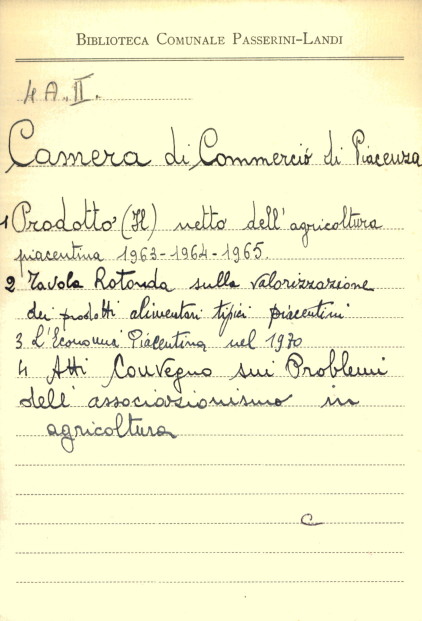 BIBLIOTECA COMUNALE PASSERINI-LANDI
4 A. II.
Camera di Commercio di Piacenza
1 Prodotto (Il) netto dell'agricoltura
piacentina 1963-1964-1965.
2 Tavola Rotonda sulla valorizzazione
dei prodotti alimentari tipici piacentini
3 L'Economia Piacentina nel 1970
4 Atti Convegno sui Problemi
dell'associazionismo in
agricoltura
C